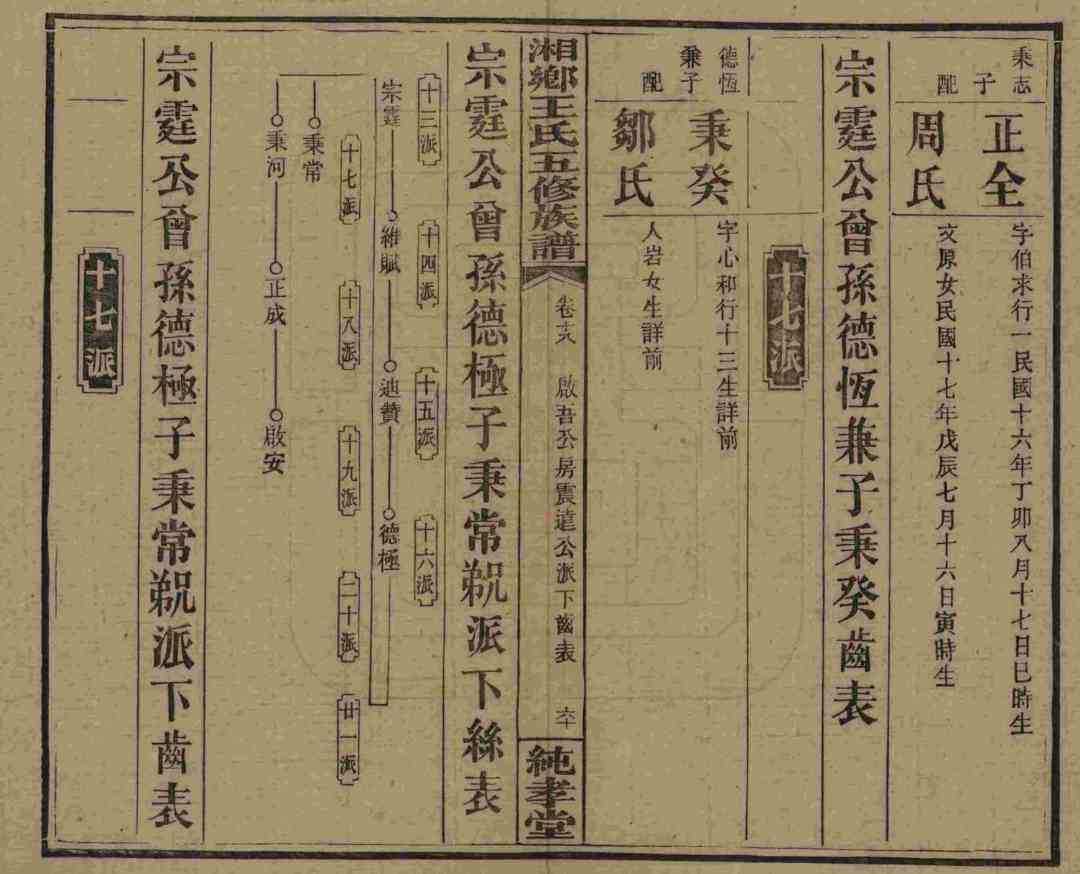 秉志子
正全
字伯求行一民國十六年丁卯八月十七日巳時生
配
周氏
文原女民國十七年戊辰七月十六日寅時生
宗霆公曾孫德恆兼子秉癸齒表
十七派
德恆兼子
秉癸
字心和行十三生詳前
配
鄒氏
人岩女生詳前
湘鄉王氏五修族譜
卷 啟吾公房震遠公派下齒表 六十
純孝堂
宗霆公曾孫德極子秉常貎派下絲表
十三派
十四派
十五派
十六派
宗霆 維賦 迪贊 德極
十七派
十八派
十九派
二十派
廿一派
秉常
秉河 正成 啟安
宗霆公曾孫德極子秉常貎派下齒表
十七派